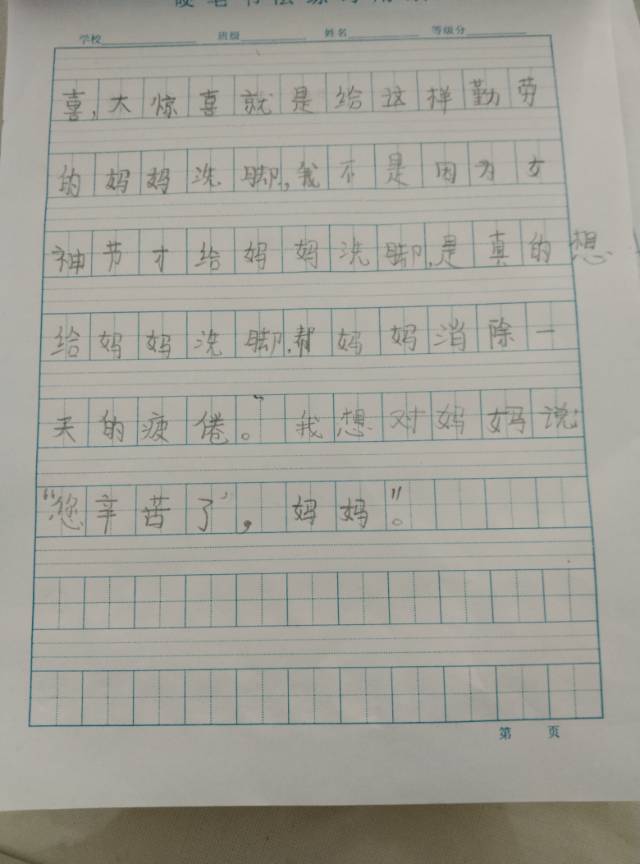 学校 班级 姓名 等级分
喜,大惊喜就是给这样勤劳
的妈妈洗脚,我不是因为女
神节才给妈妈洗脚,是真的想
给妈妈洗脚,帮妈妈消除一
天的疲倦。我想对妈妈说:
“您辛苦了,妈妈”。
第 页